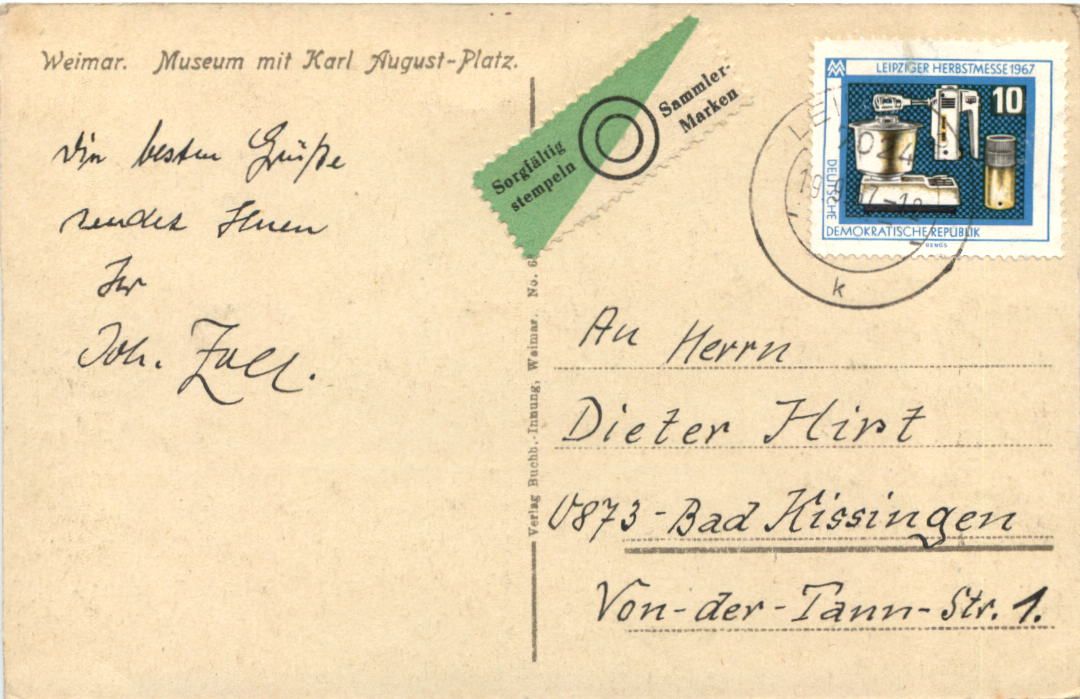 Weimar. Museum mit Karl August-Platz.
Die besten Grüße
sendet Ihnen
Ihr
Joh. Zall.
Sorgfältig
stempeln
Sammler-
Marken
LEIPZIGER HERBSTMESSE 1967
10
DEUTSCHE
DEMOKRATISCHE REPUBLIK
7024
k
Verlag Buchb.-Innung, Weimar. No.
An Herrn
Dieter Hirt
V873-Bad Kissingen
Von-der-Tann-Str. 1.